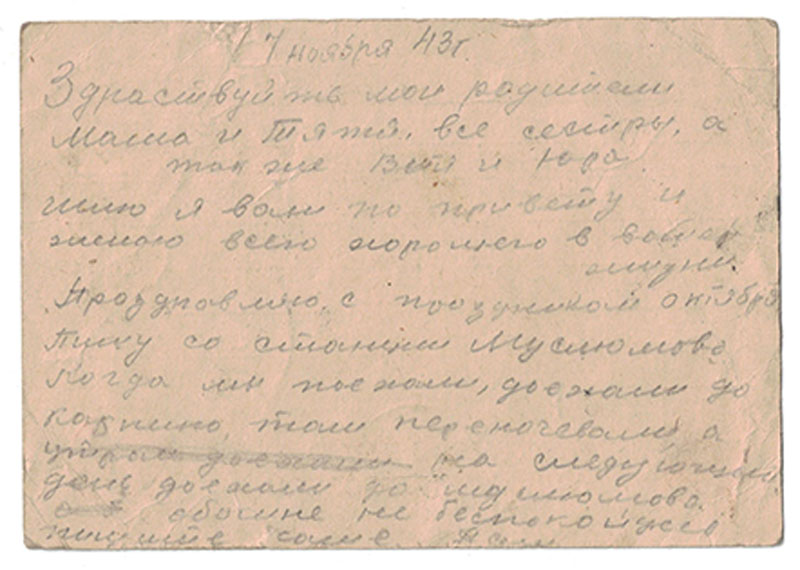 7 ноября 43г.
Здраствуйть мои родители
Маша и Тятя, все сестры, а
так же Витя и Юра
шлю я вам по привету и
желаю всего хорошего в вашей
жизни
Проздновляю с проздником октября
Пишу со станции Муслюмово
Когда мы поехали, доехали до
там переночевали а
утром доехали на следующий
день доехали до муслюмово
обомне не беспокойтесь
пишите сами